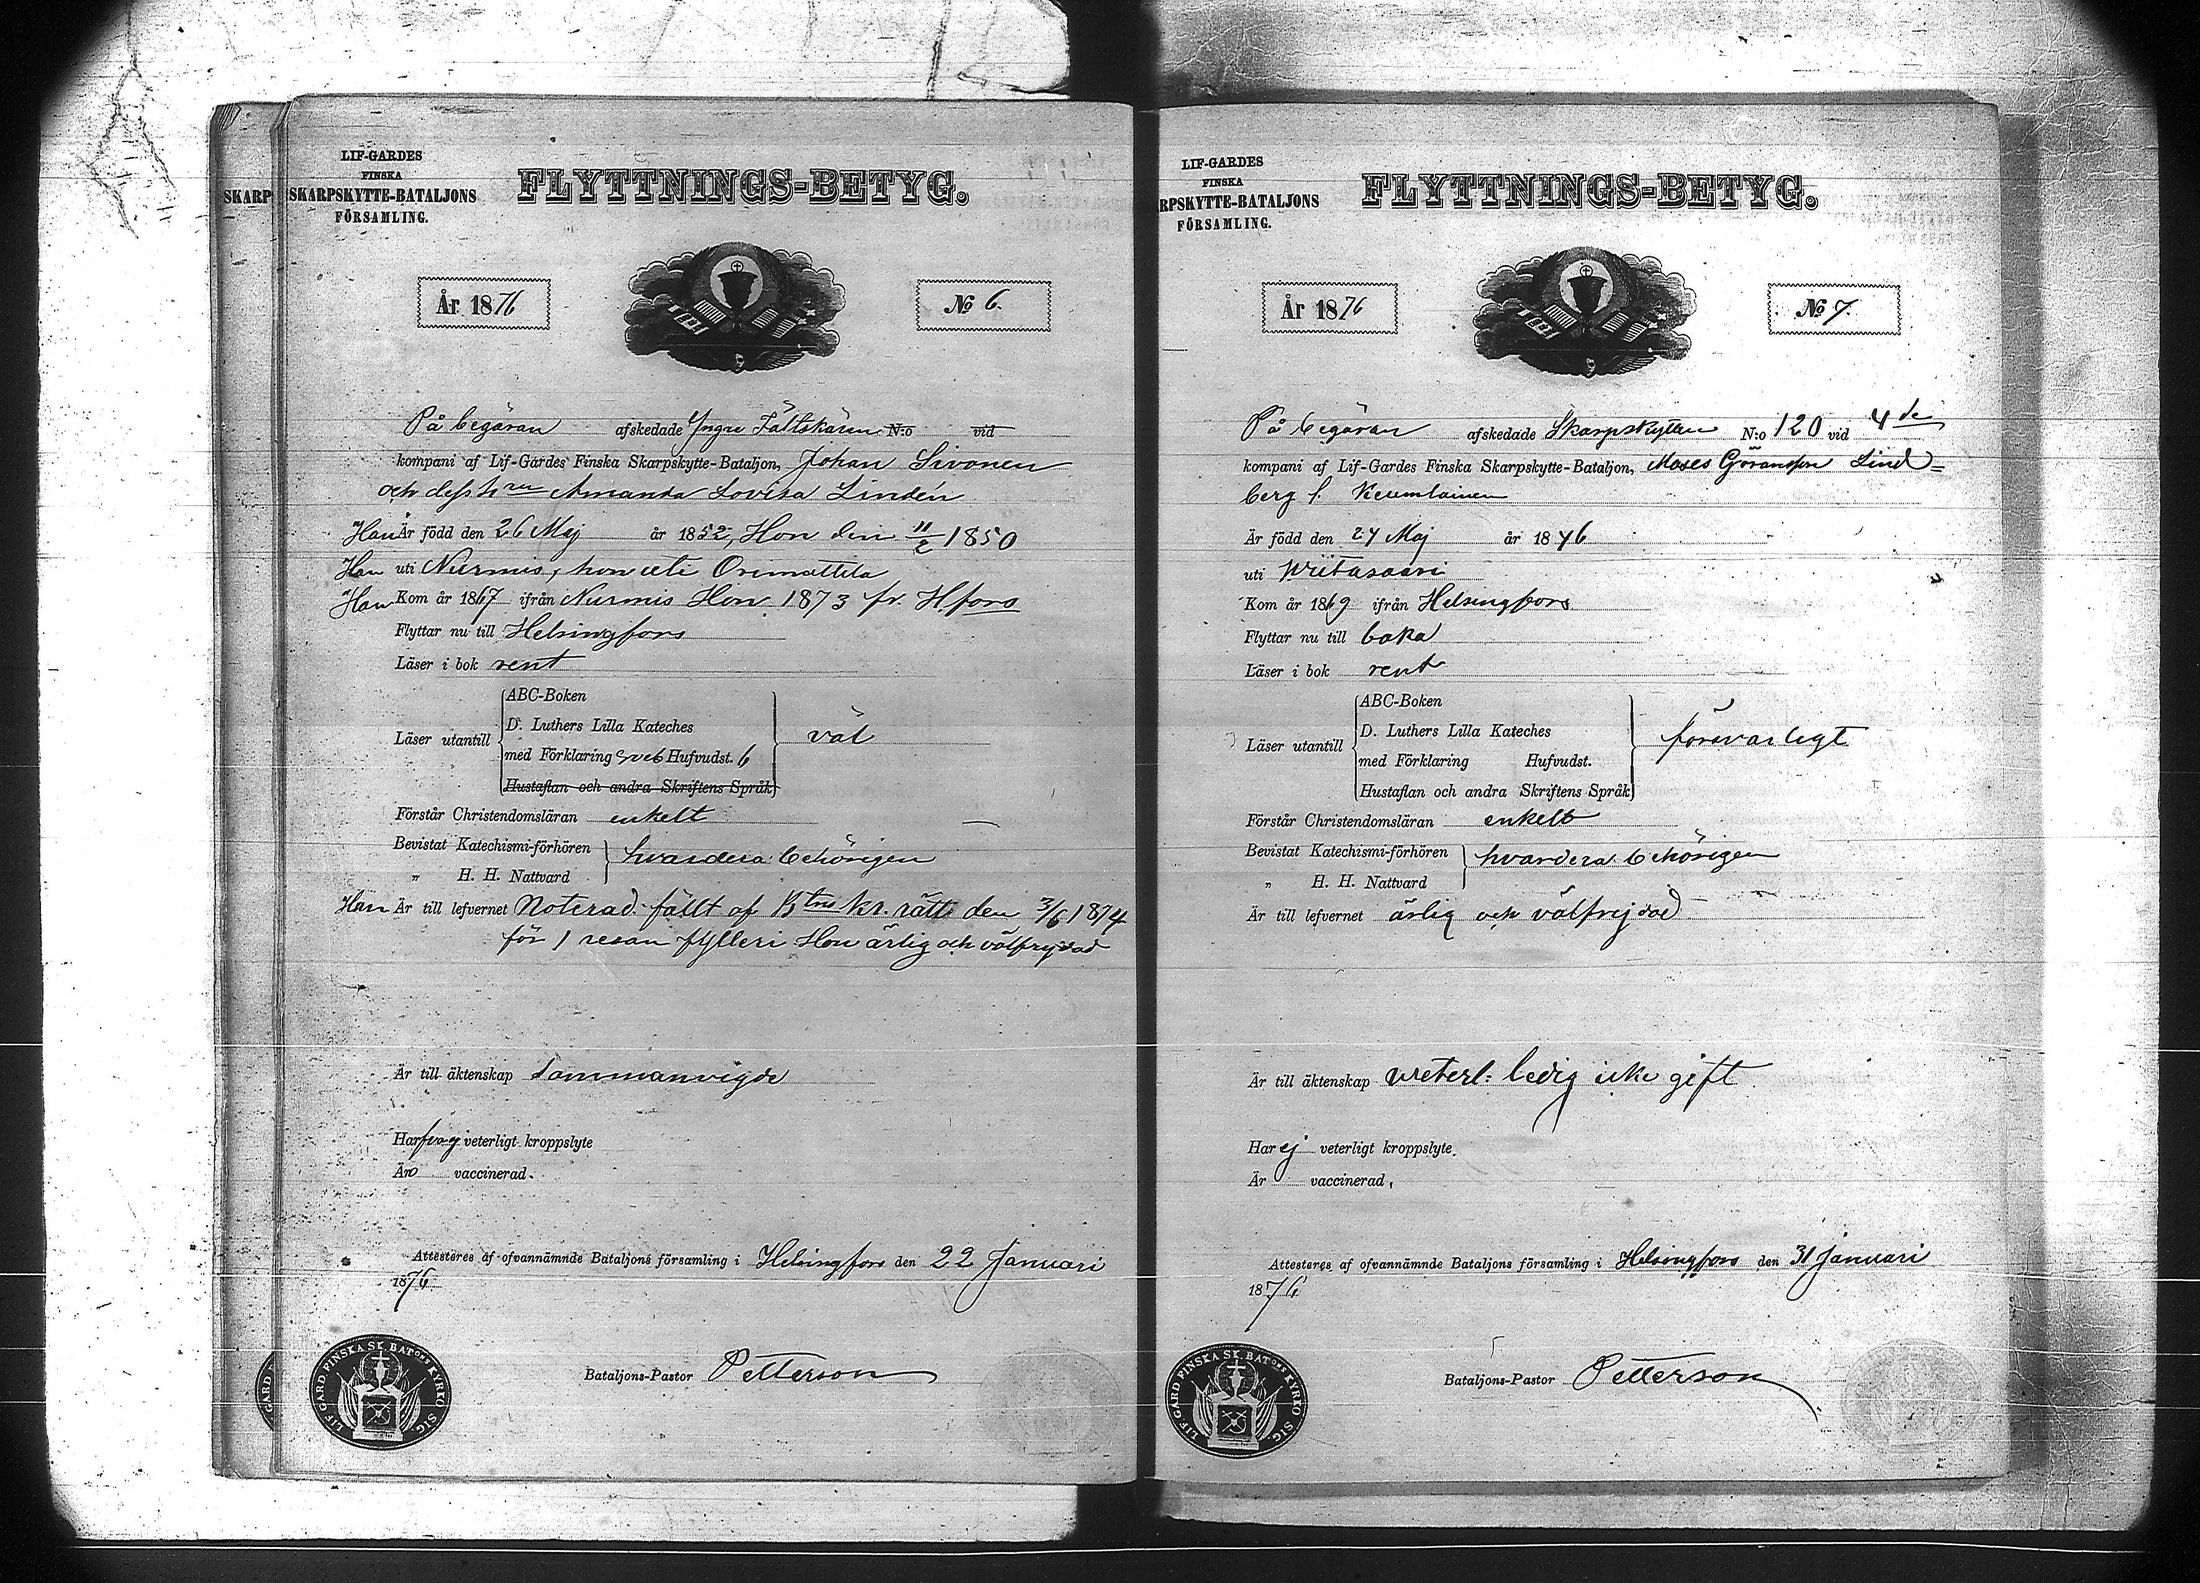 SKARP
LIF-GARDES
FINSKA
SKARPSKYTTE-BATALJONS
FÖRSAMLING.
FLYTTNINGS-BETYG.
År 1876
No 6.
På begäran afskedade Yngre Fältskären N:o vid
kompani af Lif-Gardes Finska Skarpskytte-Bataljon, Johan Sivonen
och dess h:ru Amanda Lovisa Lindén
Han Är född den 26 Maj år 1852, Hon den 11/2 1850
Han uti Nurmis, hon uti Orimattila
Han Kom år 1867 ifrån Nurmis Hon 1873 fr. H.fors
Flyttar nu till Helsingfors
Läser i bok rent
Läser utantill
ABC-Boken
D. Luthers Lilla Kateches
med Förklaring Hufvudst. 6
Hustaflan och andra Skriftens Språk
väl
Förstår Christendomsläran enkelt
Bevistat Katechismi-förhören
„ H. H. Nattvard
hvardera behörigen
Han Är till lefvernet Noterad: fällt af Btns kr. rätt den 3/6 1874
för 1 resan fylleri Hon ärlig och välfrejdad
Är till äktenskap Sammanvigde
Har veterligt kroppslyte
Äro vaccinerad.
Attesteres af ofvannämnde Bataljons församling i Helsingfors den 22 Januari
1876
Bataljons-Pastor Petterson
LIF. GARD. FINSKA SK. BATONS KYRKO SIG.
LIF-GARDES
FINSKA
RPSKYTTE-BATALJONS
FÖRSAMLING.
FLYTTNINGS-BETYG.
År 1876
No 7.
På begäran afskedade Skarpskytten N:o 120 vid 4de
kompani af Lif-Gardes Finska Skarpskytte-Bataljon, Moses Göransson Lind=
berg f.
Är född den 24 Maj år 1846
uti Wiitasaari
Kom år 1869 ifrån Helsingfors
Flyttar nu till baka
Läser i bok rent
Läser utantill
ABC-Boken
D. Luthers Lilla Kateches
med Förklaring Hufvudst.
Hustaflan och andra Skriftens Språk
försvarligt
Förstår Christendomsläran enkelt
Bevistat Katechismi-förhören
„ H. H. Nattvard
hvardera behörigen
Är till lefvernet ärlig och välfrejdad
Är till äktenskap veterl: ledig icke gift
Har ej veterligt kroppslyte.
Är vaccinerad,
Attesteres af ofvannämnde Bataljons församling i Helsingfors den 31 Januari
1876
Bataljons-Pastor Petterson
LIF. GARD FINSKA SK. BATONS KYRKO SIG.